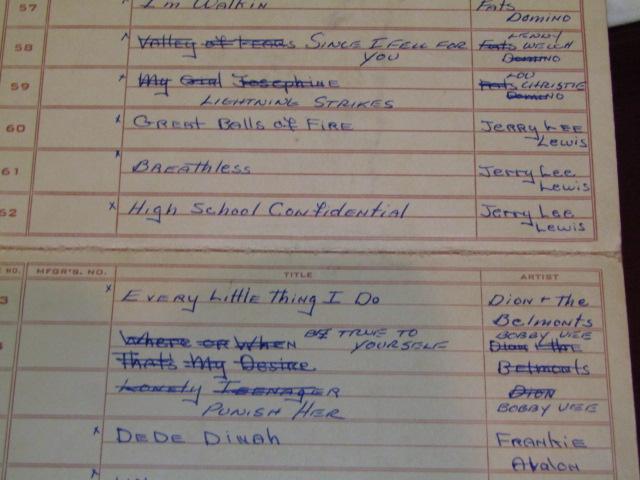 57 I'm Walkin Fats
Domino
58 Valley of Tears Since I Fell For Lenny
You Fats Welch
Domino
59 My Girl Josephine Lou
Fats Christie
Lightning Strikes Domino
60 Great Balls of Fire Jerry Lee
Lewis
61 Breathless Jerry Lee
Lewis
62 High School Confidential Jerry Lee
Lewis
E NO. MFGR'S. NO. TITLE ARTIST
3 Every Little Thing I Do Dion + The
Belmonts
Where or When Be True To Bobby Vee
Yourself Dion + The
That's My Desire Belmonts
Lonely Teenager Dion
Punish Her Bobby Vee
DeDe Dinah Frankie
Avalon